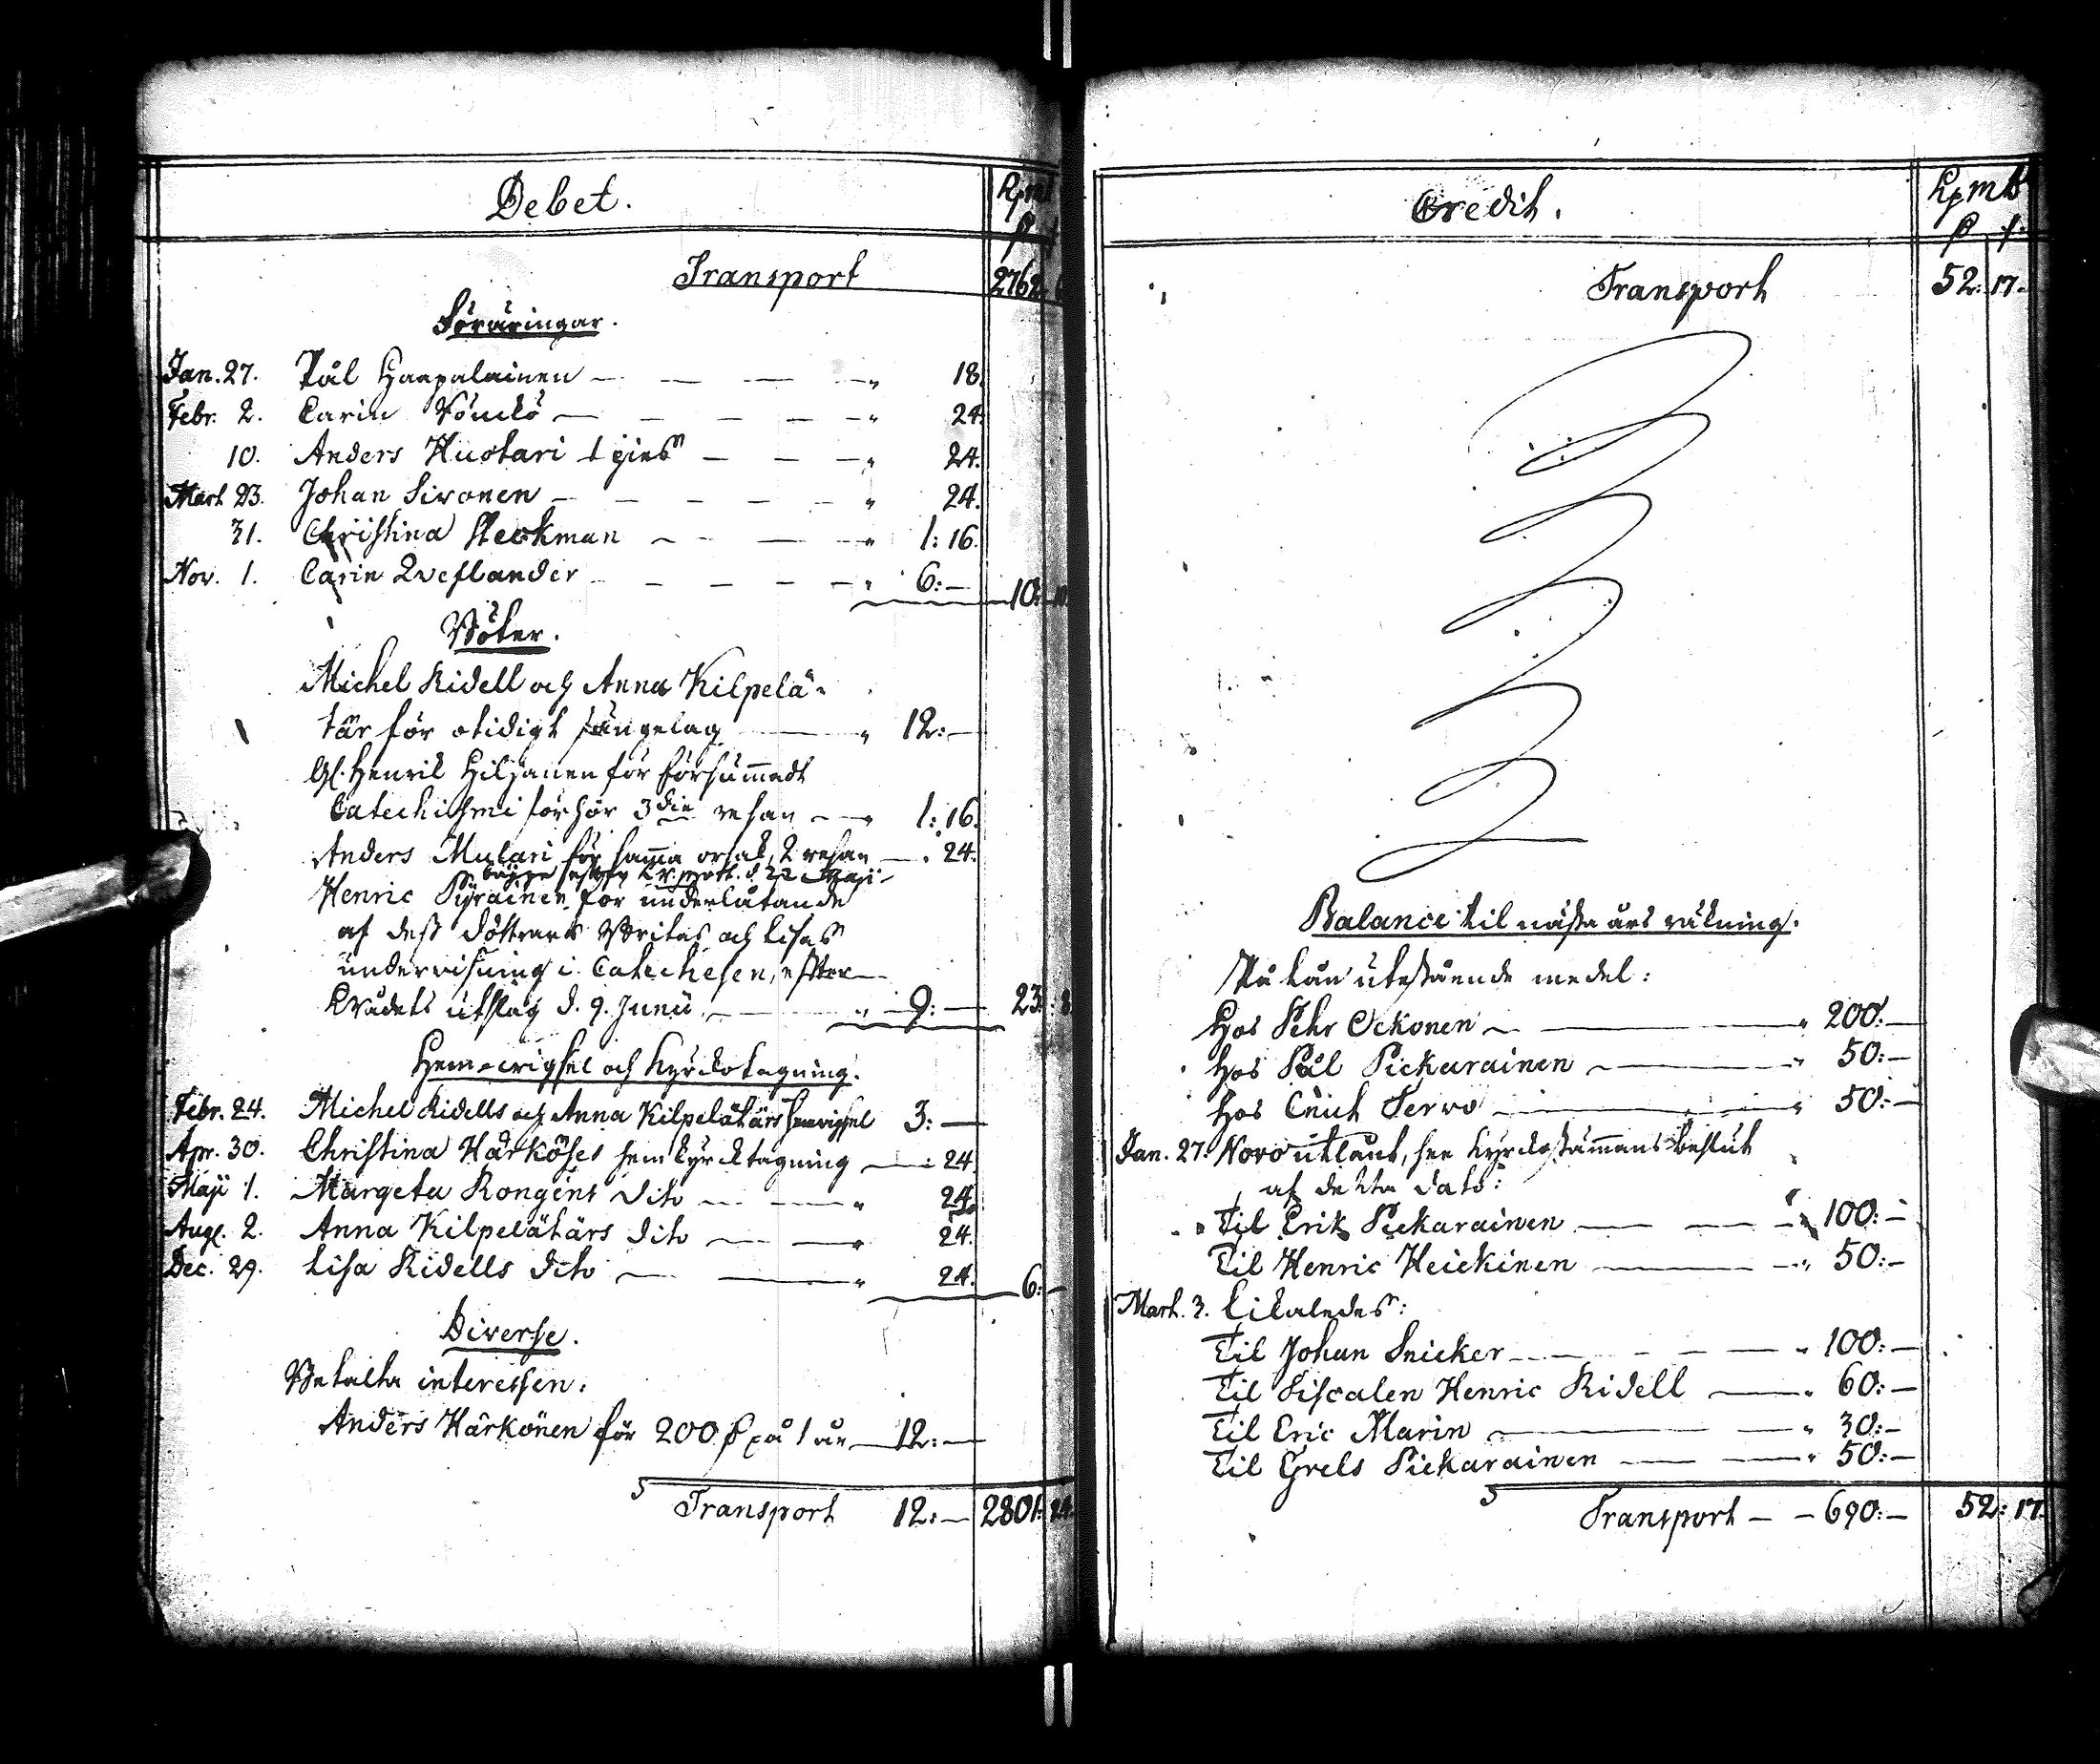 Debet.
Kpmt
Transport 2762:
Föräringar.
Jan. 27. Pål Haapalainen — — — " 18.
Febr. 2. Carin — — — — " 24.
10. Anders Huotari — — — " 24.
Mart. 23. Johan Sivonen — — — — " 24.
31. Christina Steckman — — — " 1: 16.
Nov. 1. Carin — — — — " 6: — 10:
Böter.
Michel Ridell och Anna Kilpelä-
tär för otidigt sängelag — " 12: —
Gl. Henrik Hiljanen för försummadt
Catechismi förhör 3die resan — " 1: 16.
Anders Mulari för samma orsak, 2 resan — " 24.
d. 22 Maji
Henric Pyrainen för underlåtande
af dess döttrars Britas och Lisas
undervisning i Catechesen, efter
Kr. rådets utslag d. 9. Junii — " 9: — 23: 8
Hem-vigsel och kyrkotagning.
Febr. 24. Michel Ridells och Anna Kilpelätärs hemvigsel 3: —
Apr. 30. Christina Härköses hemkyrcktagning — : 24
Maji 1. Margeta Rongens dito — — " 24.
Aug. 2. Anna Kilpelätärs dito — — " 24.
Dec. 29. Lisa Ridells dito — — " 24. 6: —
Diverse.
Betalta interessen:
Anders Härkönen för 200 på 1 år — 12: —
Transport 12: — 2801: 24.
Credit.
Kpmt
Transport 52: 17.
Balance til nästa års räkning.
På lån utestående medel:
Hos Pehr Ockonen — — " 200: —
Hos Pål Pickarainen — " 50: —
Hos Servo — " 50: —
Jan. 27. Novo utlånt, see kyrckostämmans beslut
af detta dato:
Til Erik Pickarainen — — " 100: —
Til Henric Heickinen — — " 50: —
Mart. 3. Likaledes:
Til Johan Snicker — — — " 100: —
Til Fiscalen Henric Ridell — " 60: —
Til Eric Marin — — " 30: —
Til Grels Pickarainen — — " 50: —
Transport — — 690: — 52: 17.